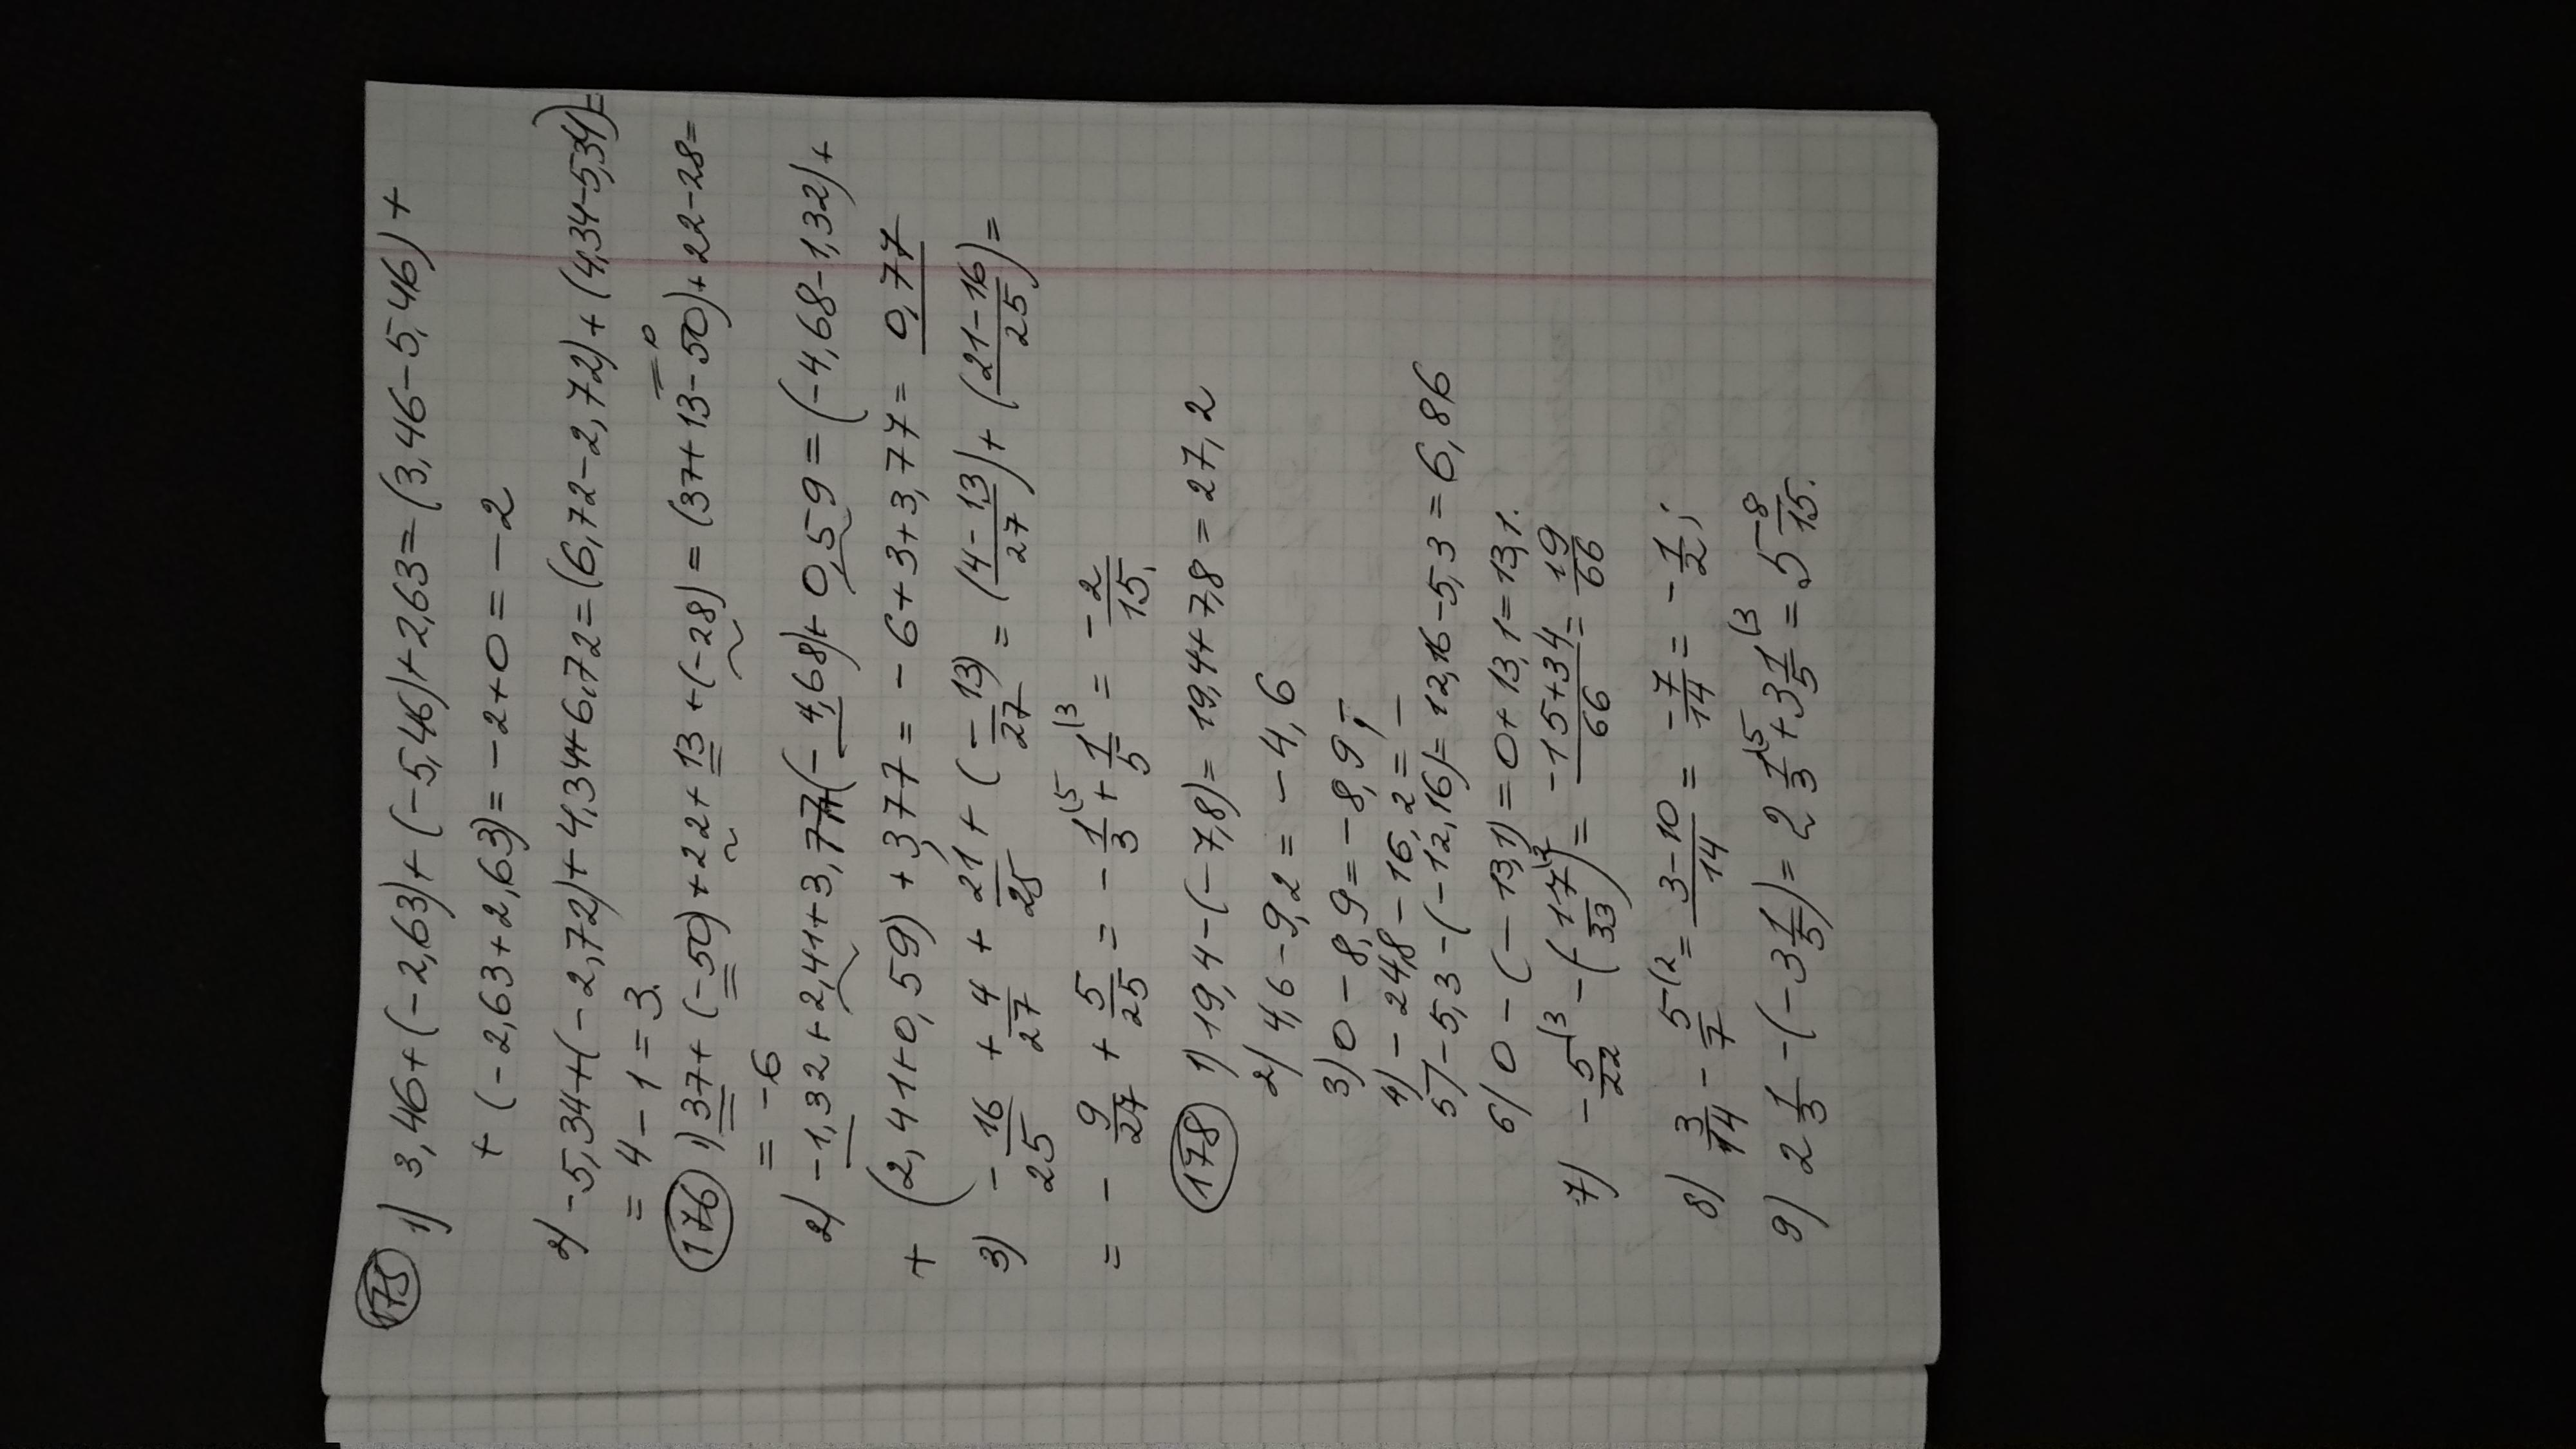 175 1) 3,46+(-2,63)+(-5,46)+2,63=(3,46-5,46)+
+(-2,63+2,63)=-2+0=-2
2) -5,34+(-2,72)+4,34+6,72=(6,72-2,72)+(4,34-5,34)=
=4-1=3.
176 1) 37+(-50)+22+13+(-28)=(37+13-50)+22-28=
=-6
2) -1,32+2,41+3,77+(-4,68)+0,59=(-4,68-1,32)+
+(2,41+0,59)+3,77=-6+3+3,77=0,77
3) -16/25+4/27+21/25+(-13/27)=(4-13/27)+(21-16/25)=
=-9/27+5/25=-1/3\5+1/5\3=-2/15.
178 1) 19,4-(-7,8)=19,4+7,8=27,2
2) 4,6-9,2=-4,6
3) 0-8,9=-8,9;
4) -24,8-16,2=
5) -5,3-(-12,16)=12,16-5,3=6,86
6) 0-(-13,1)=0+13,1=13,1.
7) -5/22\3-(-17/33\2)=-15+34/66=19/66
8) 3/14-5/7\2=3-10/14=-7/14=-1/2;
9) 2 1/3-(-3 1/5)=2 1/3\5+3 1/5\3=5 8/15.